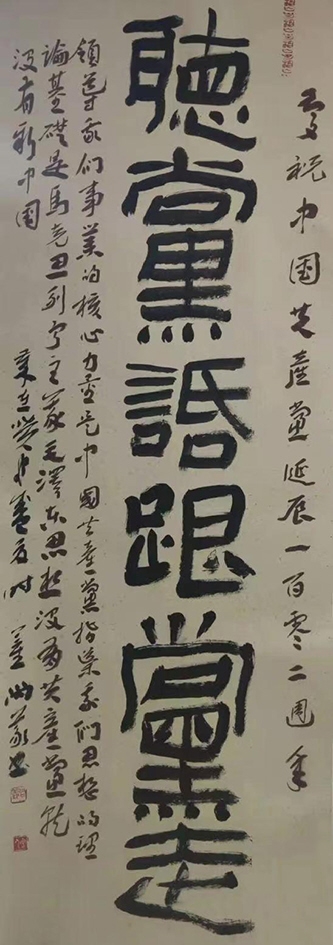 慶祝中國共產黨誕辰一百零二周年
聽黨話跟黨走
領導我們事業的核心力量是中國共產黨指導我們思想的理
論基礎是馬克思列寧主義毛澤東思想沒有共產黨就
沒有新中國